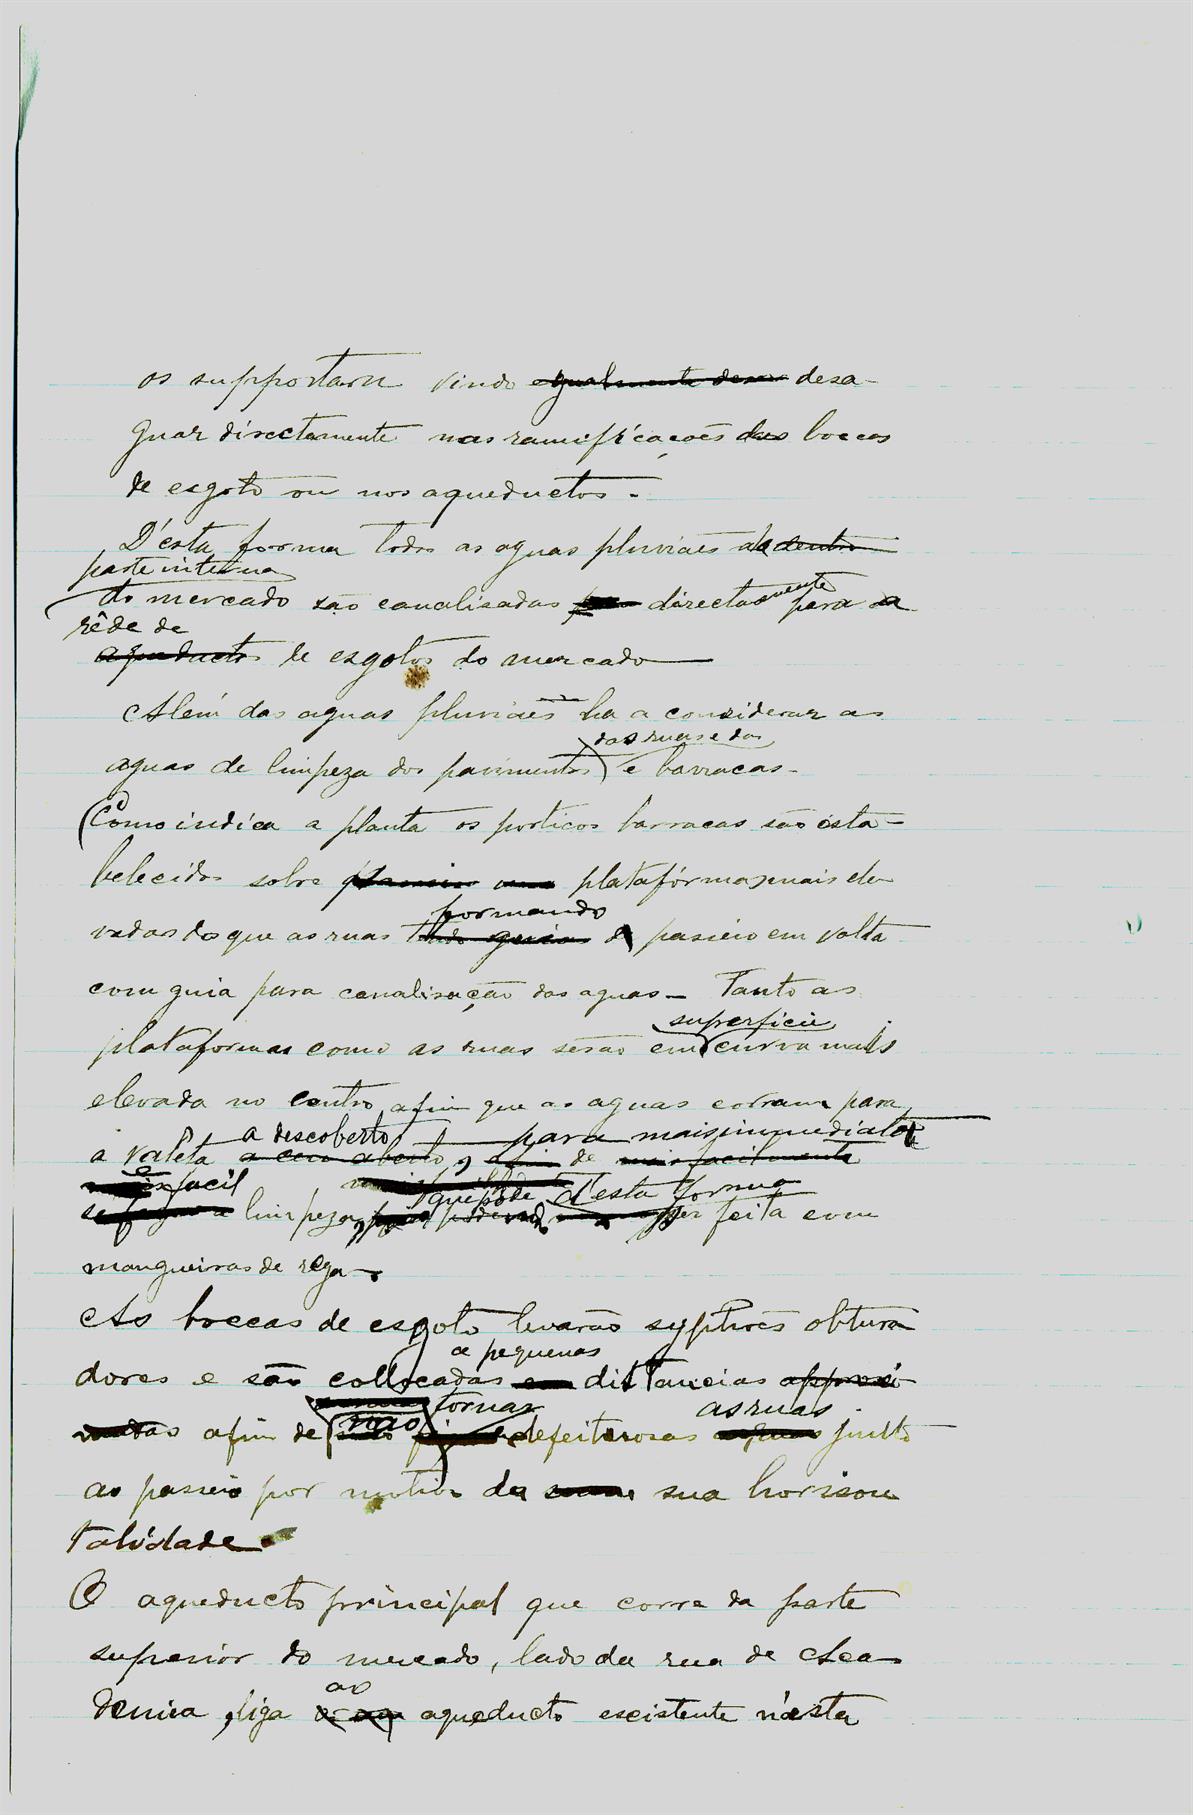 os supportam vindo egualmente desa-
guar directamente nas ramificações das boccas
de esgoto ou nos aqueductos.
D'esta forma todas as aguas pluviaes da dentro
parte interna
do mercado são canalisadas directamente para a
rêde de
aqueductos de esgotos do mercado
Alem das aguas pluviaes ha a considerar as
das ruas e das
aguas de limpeza dos pavimentos e barracas.
Como indica a planta os porticos barracas são esta-
belecidos sobre plataformas mais ele
formando
vadas do que as ruas tendo guias de passeio em volta
com guia para canalisação das aguas. Tanto as
superficie
plataformas como as ruas serão em curva mais
elevada no centro afim que as aguas corram para
a descoberto, para mais immediata
a valeta a ceu aberto, afim de mais facilmente
e facil
que póde d'esta forma
se faça a limpeza, ser feita com
mangueiras de rega.
As boccas de esgoto levarão syphões obtura
a pequenas
dores e são collocadas em distancias approxi
tornar as ruas
madas afim de não defeituosas aguas junto
ao passeio por motivo da sua horison
talidade.
O aqueducto principal que corre da parte
superior do mercado, lado da rua de Aca
ao
demica, liga aqueducto existente n'esta